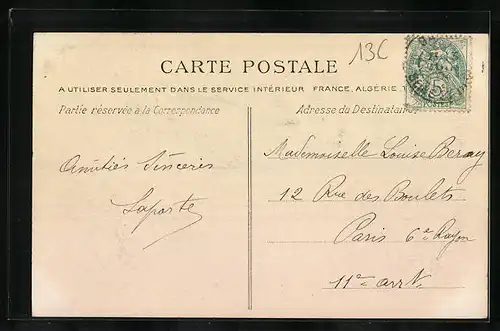 13C
CARTE POSTALE
A UTILISER SEULEMENT DANS LE SERVICE INTÉRIEUR FRANCE, ALGÉRIE, T
Partie réservée à la Correspondance
Adresse du Destinataire
Amitiés Sincères
Laporte
Mademoiselle Louise Beray
12 Rue des Boulets
Paris 6e Rayon
11e arrt.